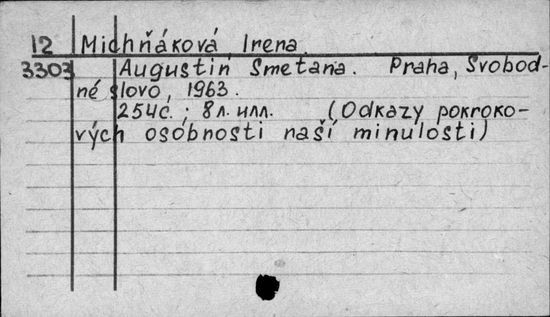 12 Michňáková, Irena.
3303 Augustin Smetana. Praha, Svobod-
né slovo, 1963.
254с.; 8л.илл. (Odkazy pokroko-
vých osobnosti naší minulosti)